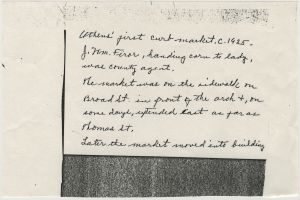 Athens' first curb market, C. 1925.
J. Wm. Firor, handing corn to lady,
was county agent.
The market was on the sidewalk on
Broad St. in front of the arch &, on
some days, extended East as far as
Thomas St.
Later the market moved into building